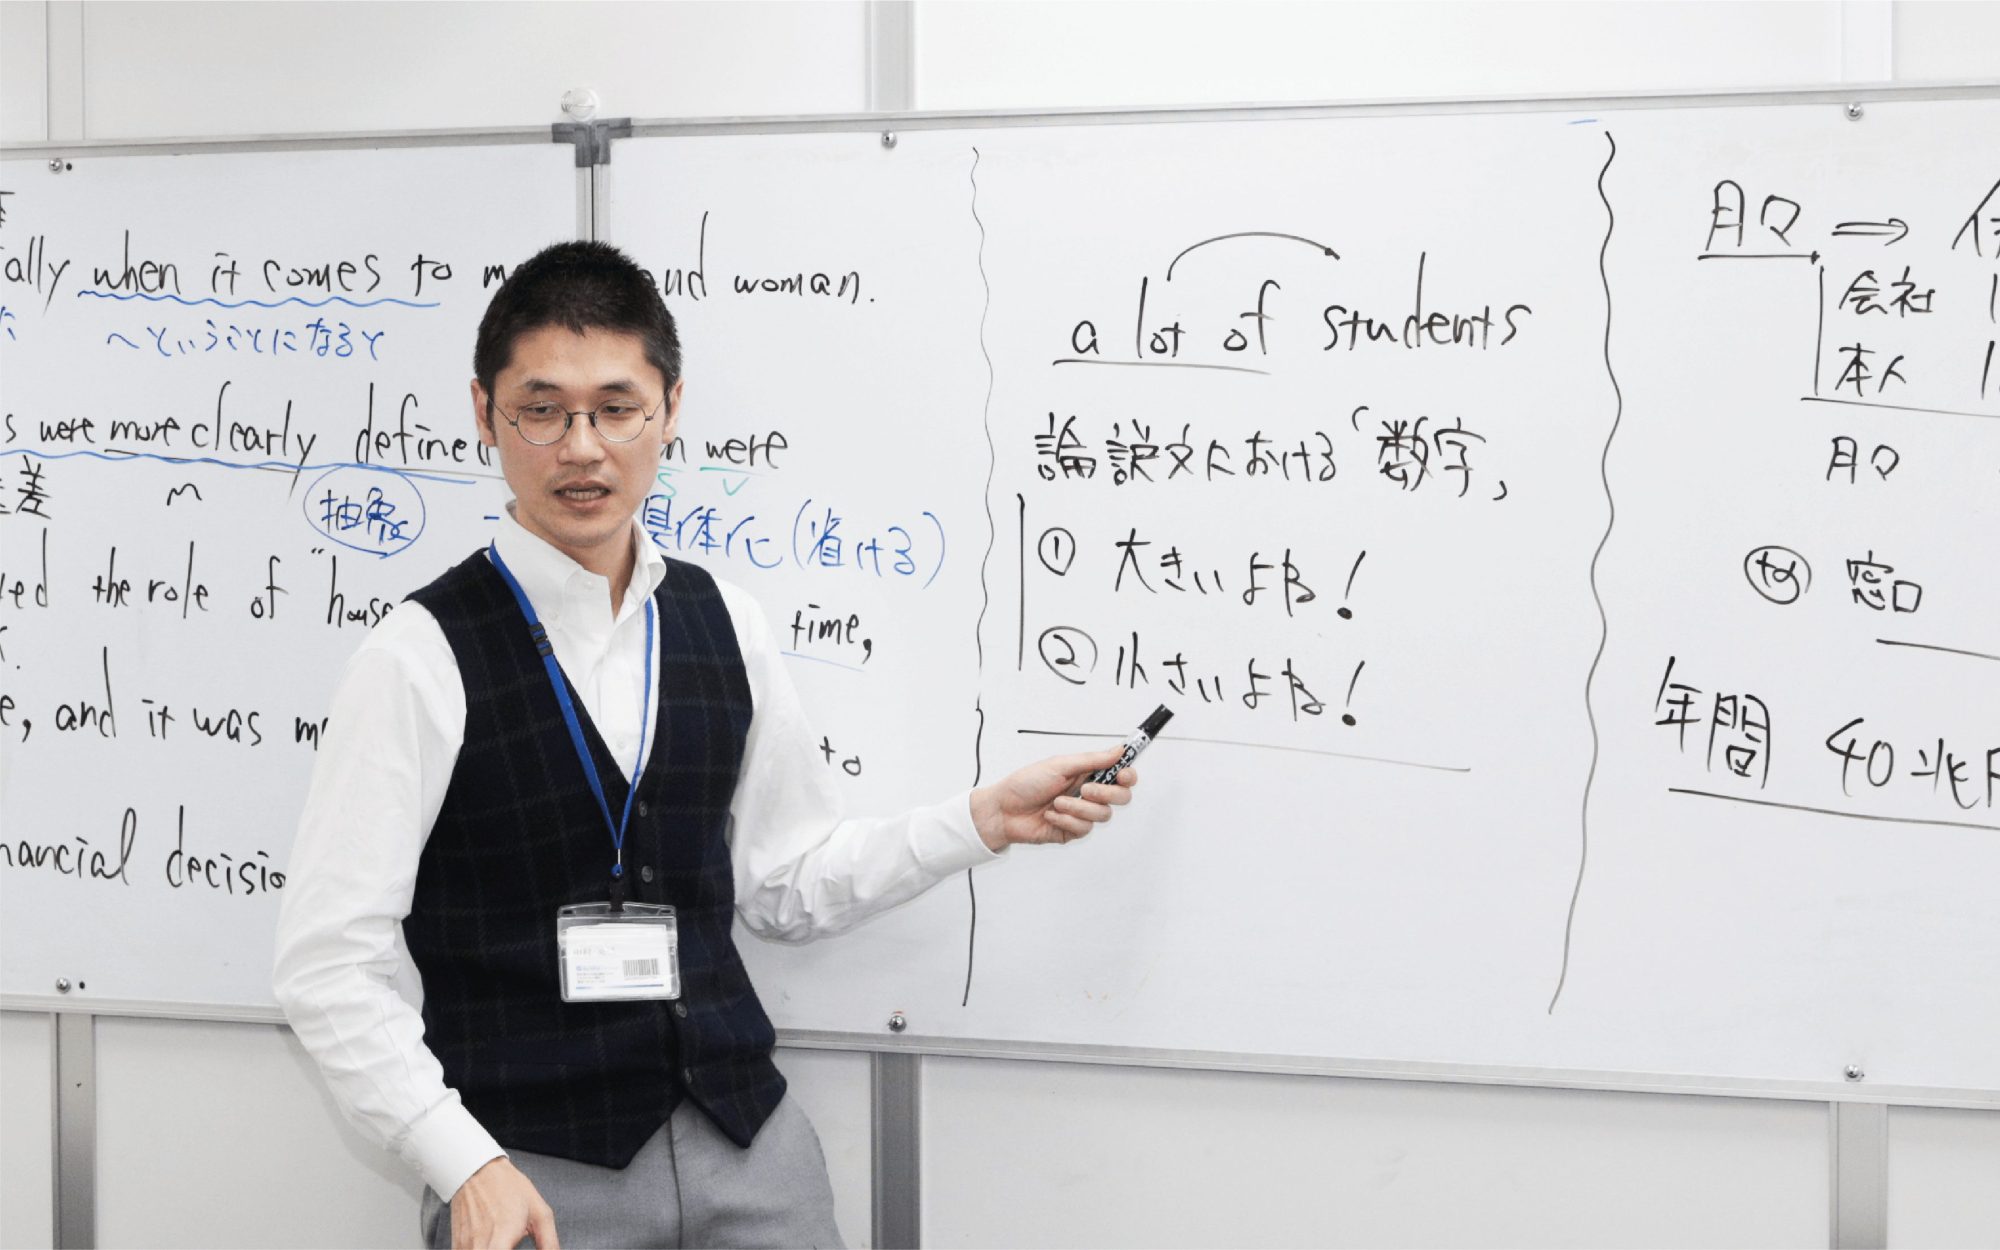 ally when it comes to m and woman.
〜ということになると
s were more clearly defined n were
差
抽象
具体化(省ける)
S V
ed the role of "house time,
e, and it was m to
nancial decisio
a lot of students
論説文における「数字」
① 大きいよね!
② 小さいよね!
月々 ⇒
会社
本人
月々
窓口
年間 40兆円